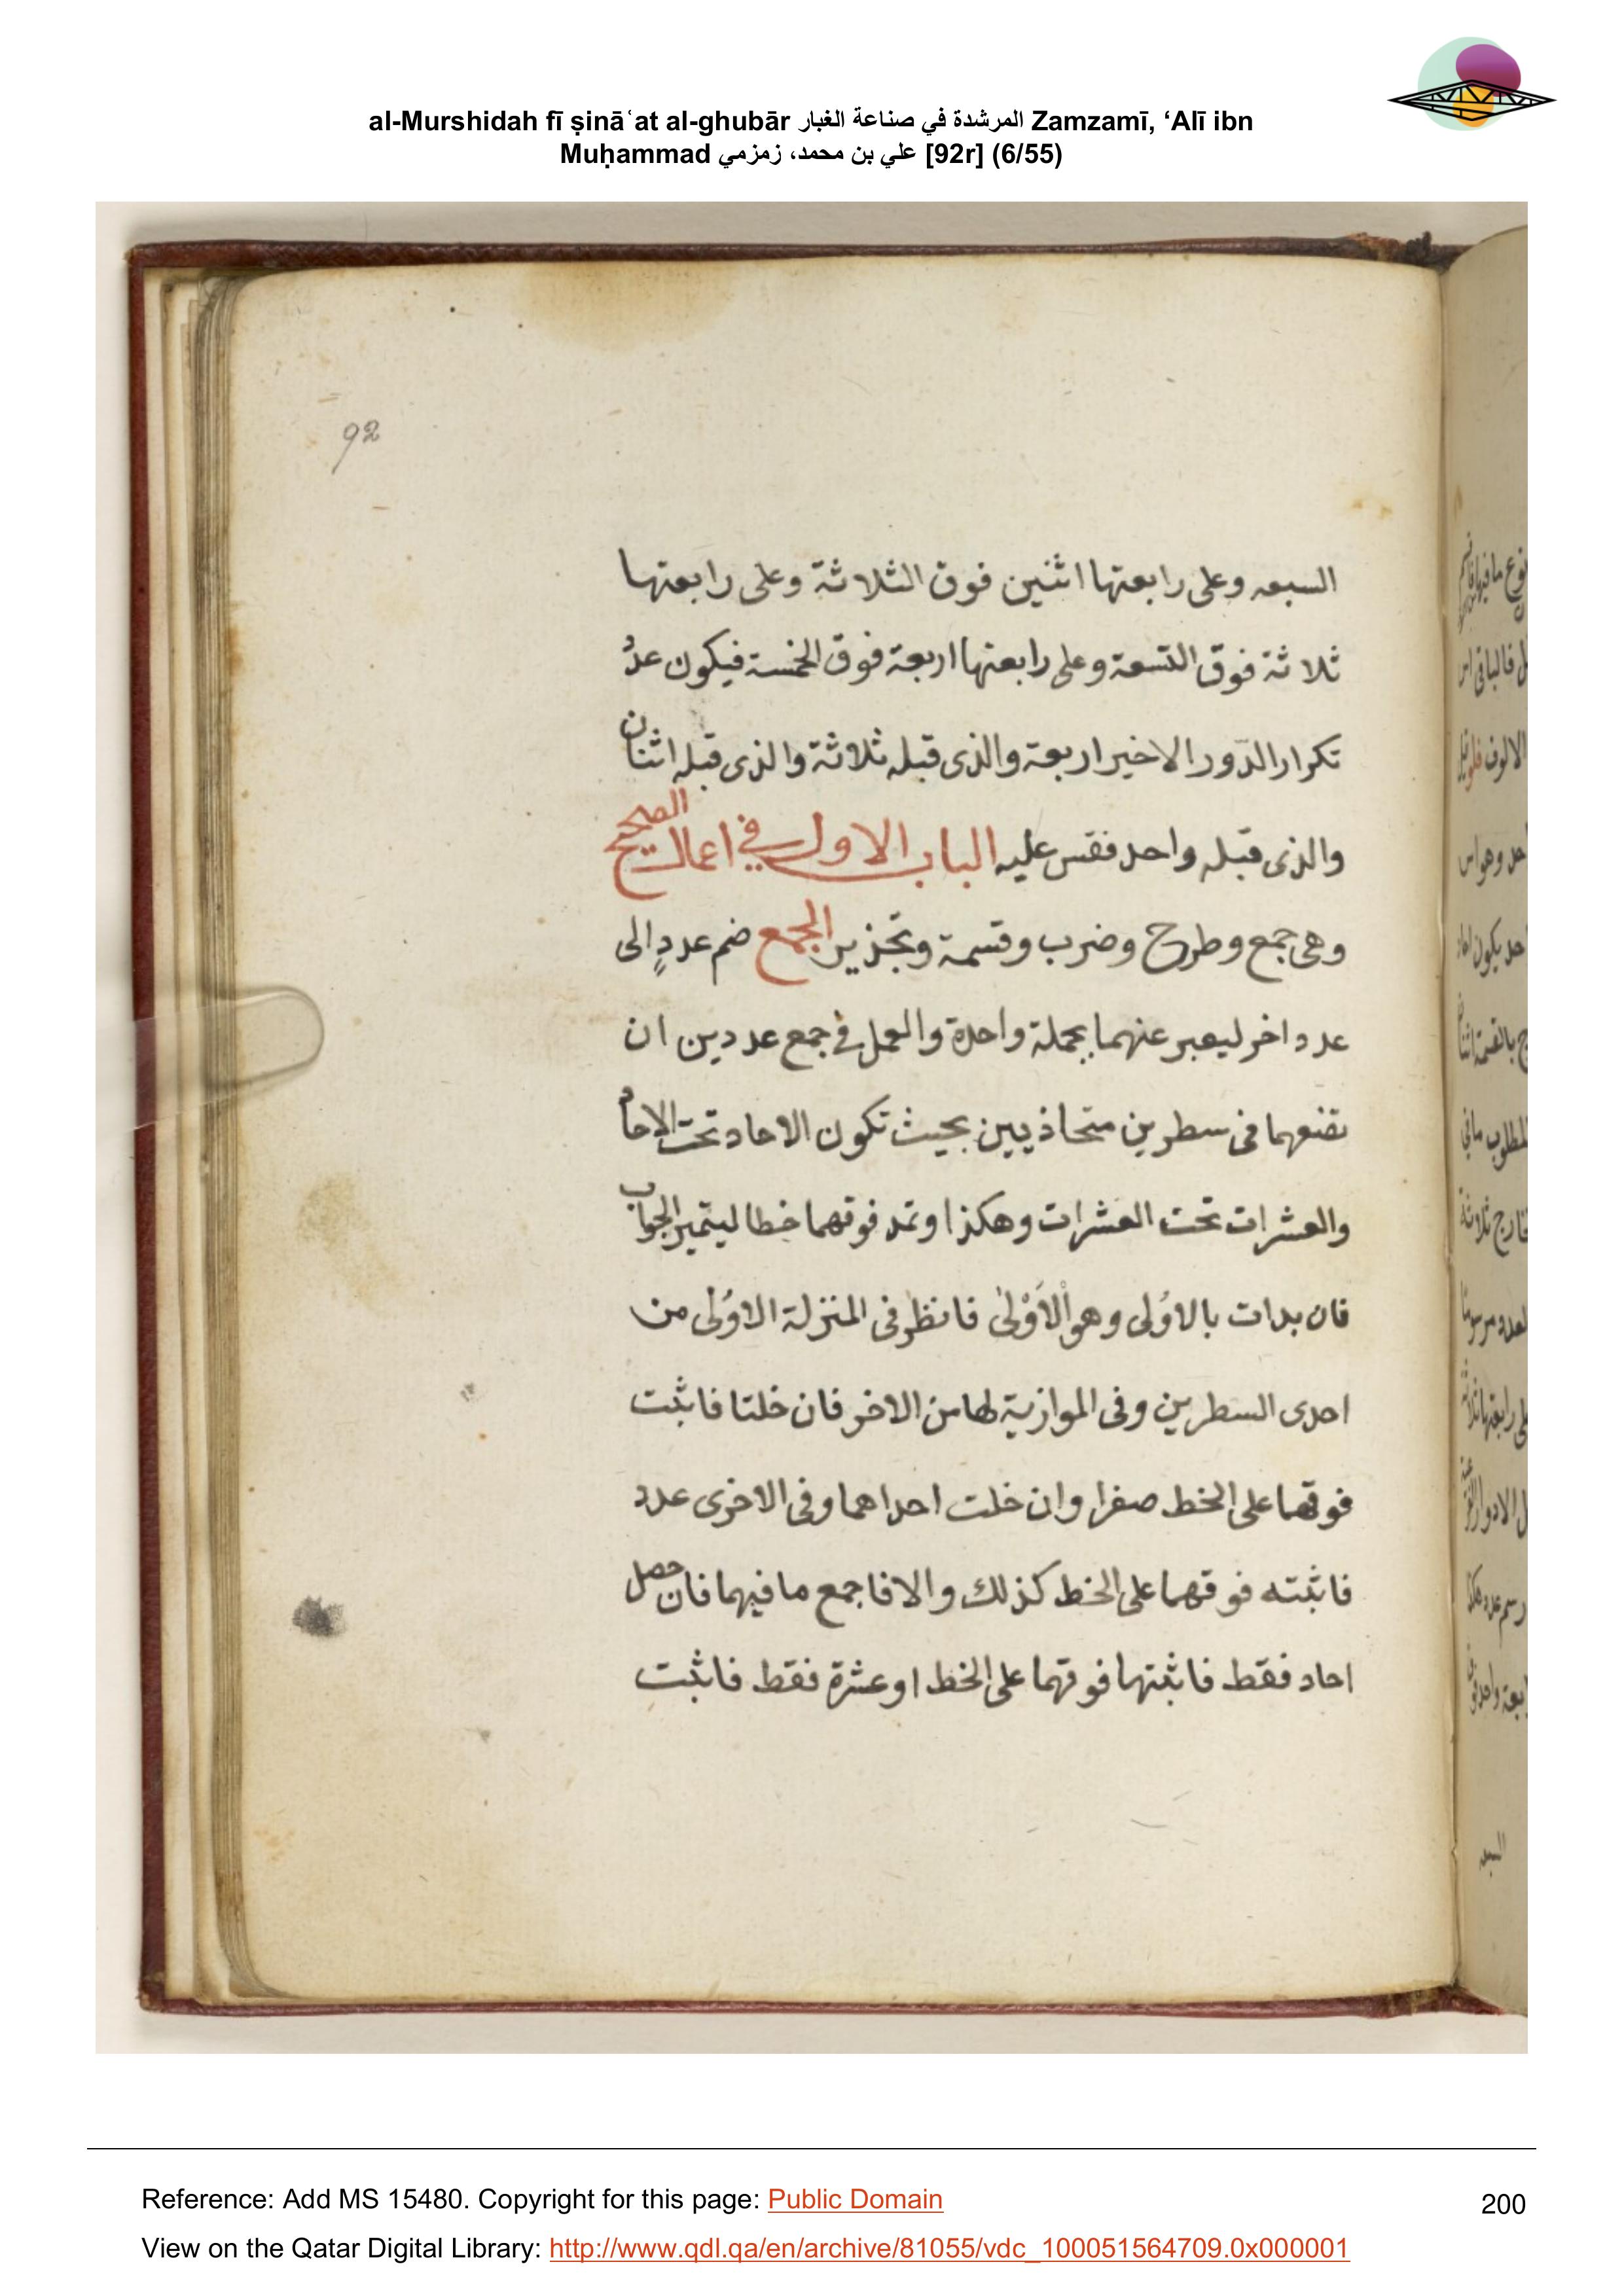 al-Murshidah fī ṣināʿat al-ghubār المرشدة في صناعة الغبار Zamzamī, ‘Alī ibn
Muḥammad علي بن محمد، زمزمي [92r] (6/55)
92
السبعه وعلى رابعتها اثنين فوق الثلاثة وعلى رابعتها
ثلاثة فوق التسعة وعلى رابعتها اربعة فوق الخمسة فيكون عدد
تكرار الدّور الاخير اربعة والذى قبله ثلاثة والذى قبله اثنان
والذى قبله واحد فقس عليه الباب الاول في اعمال الصحيح
وهى جمع وطرح وضرب وقسمة وتجذير الجمع ضم عددٍ الى
عدد اخر ليعبر عنهما بجملة واحدة والعمل في جمع عددين ان
تضعهما فى سطرين متحاذيين بحيث تكون الاحاد تحت الاحاد
والعشرات تحت العشرات وهكذا وتمد فوقهما خطا ليتميز الجواب
فان بدات بالاوُلى وهو الْاَوْلىٰ فانظر فى المنزلة الاوُلى من
احدى السطرين وفى الموازية لها من الاخر فان خلتا فاثبت
فوقهما على الخط صفرا وان خلت احداهما وفى الاخرى عدد
فاثبته فوقهما على الخط كذلك والا فاجمع ما فيهما فان حصل
احاد فقط فاثبتها فوقهما على الخط او عشرة فقط فاثبت
Reference: Add MS 15480. Copyright for this page: Public Domain
200
View on the Qatar Digital Library: http://www.qdl.qa/en/archive/81055/vdc_100051564709.0x000001